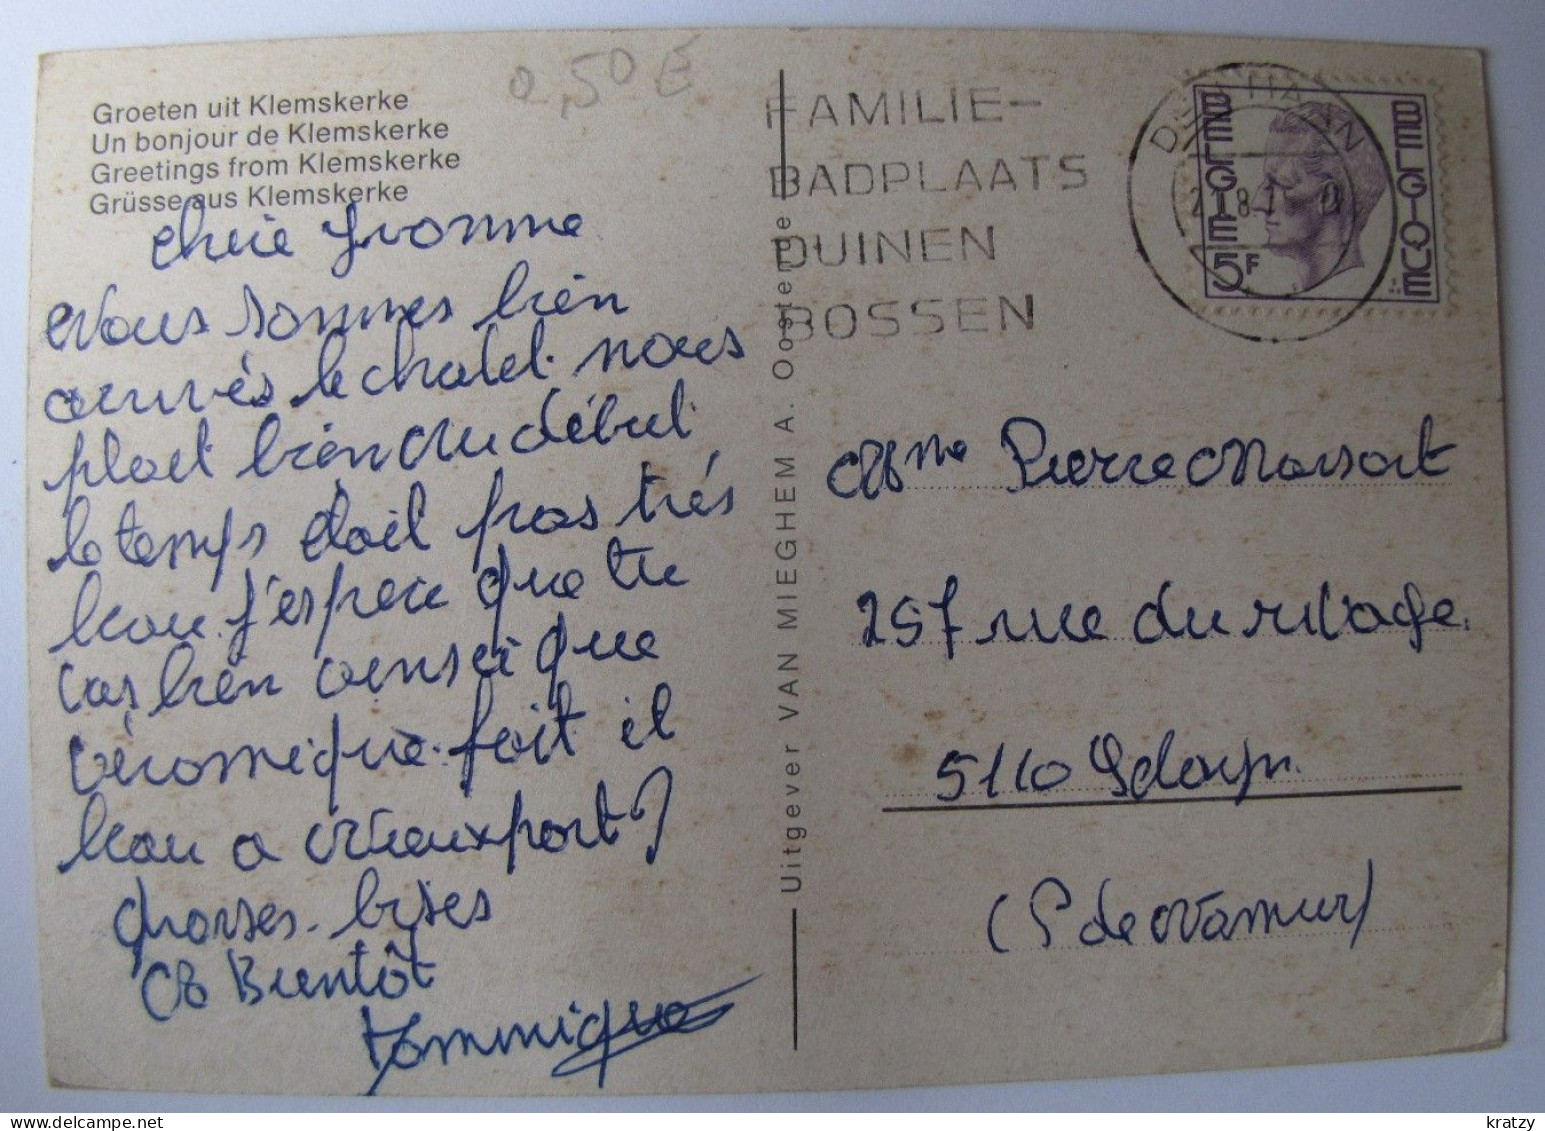 0,50 €
Groeten uit Klemskerke
Un bonjour de Klemskerke
Greetings from Klemskerke
Grüsse aus Klemskerke
chère Yvonne
Nous sommes bien
arrivés le chalet nous
plait bien au début
le temps était pas très
beau j'espère que tu
vas bien ainsi que
véronique. fait il
beau a Nieuxport?
grosses bises
A Bientôt
Dominique
Uitgever VAN MIEGHEM A. Oostende
FAMILIE-
BADPLAATS
DUINEN
BOSSEN
DE HAAN
BELGIE BELGIQUE
5F
Mme Pierre Massart
257 rue du rivage
5110
(P de Namur)
kratzy